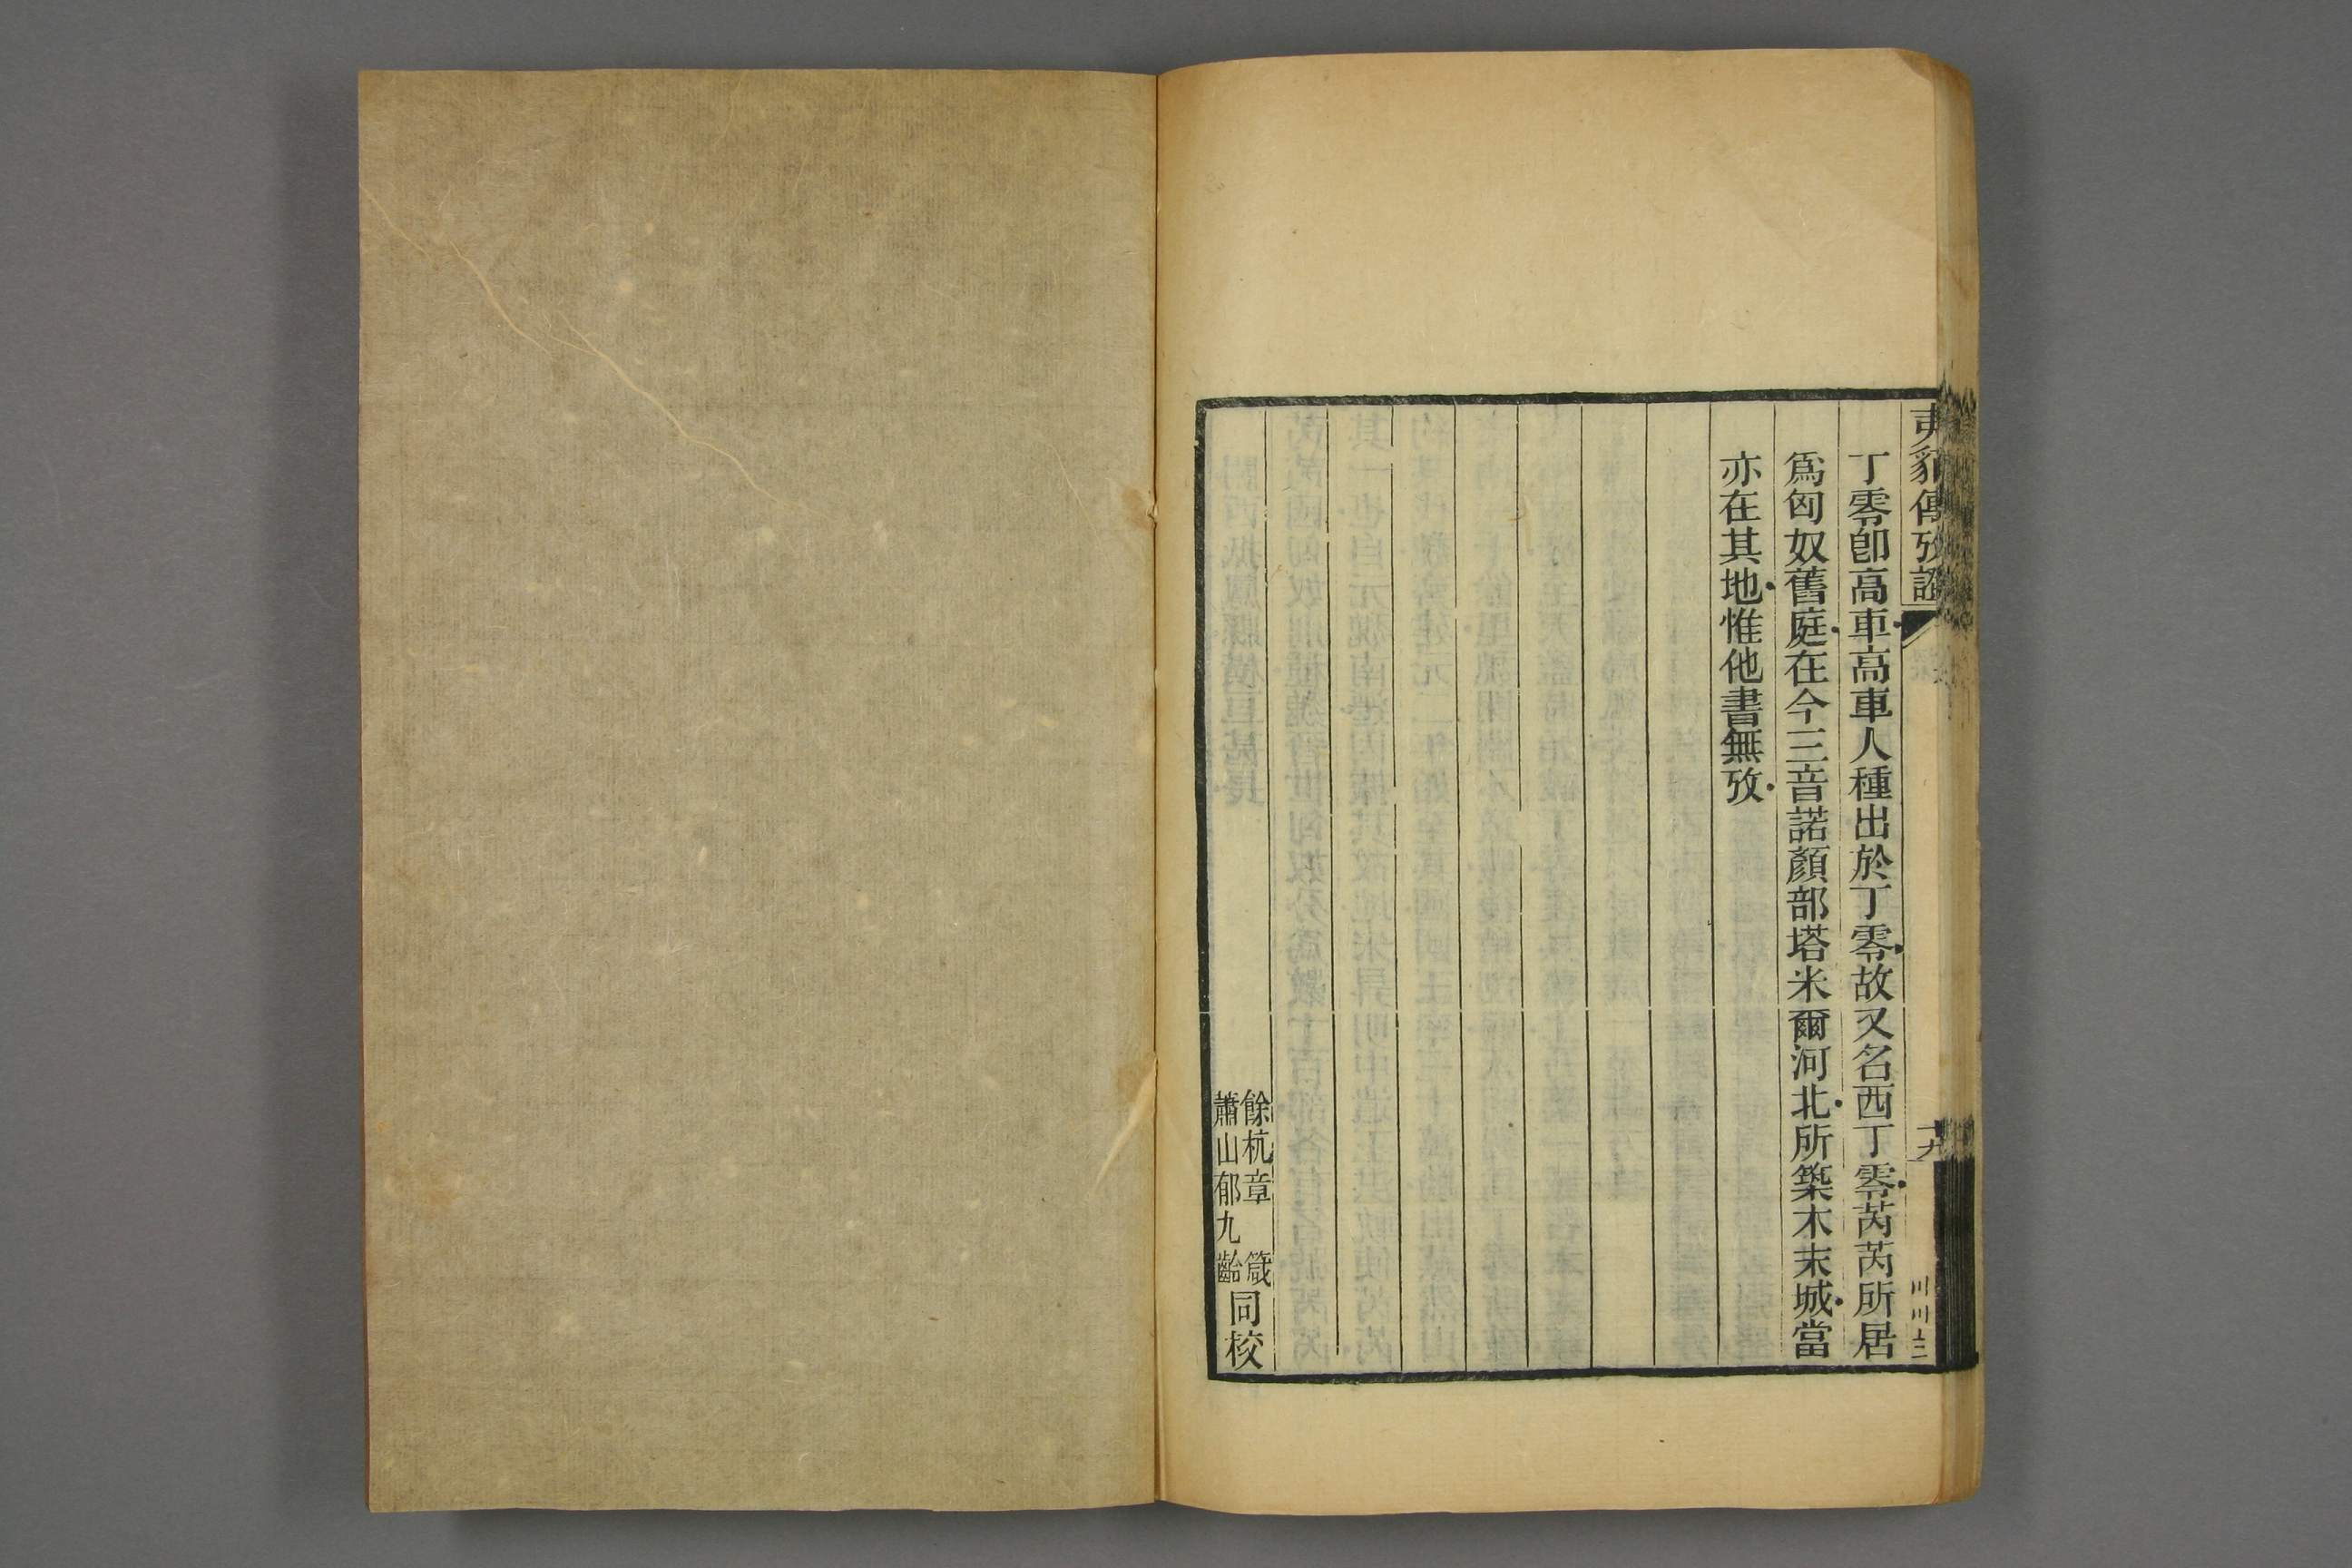 夷貊傳攷證
十九
丁零卽高車高車人種出於丁零故又名西丁零芮芮所居
爲匈奴舊庭在今三音諾顏部塔米爾河北所築木末城當
亦在其地惟他書無攷
餘杭章箴
蕭山郁九齡
同校